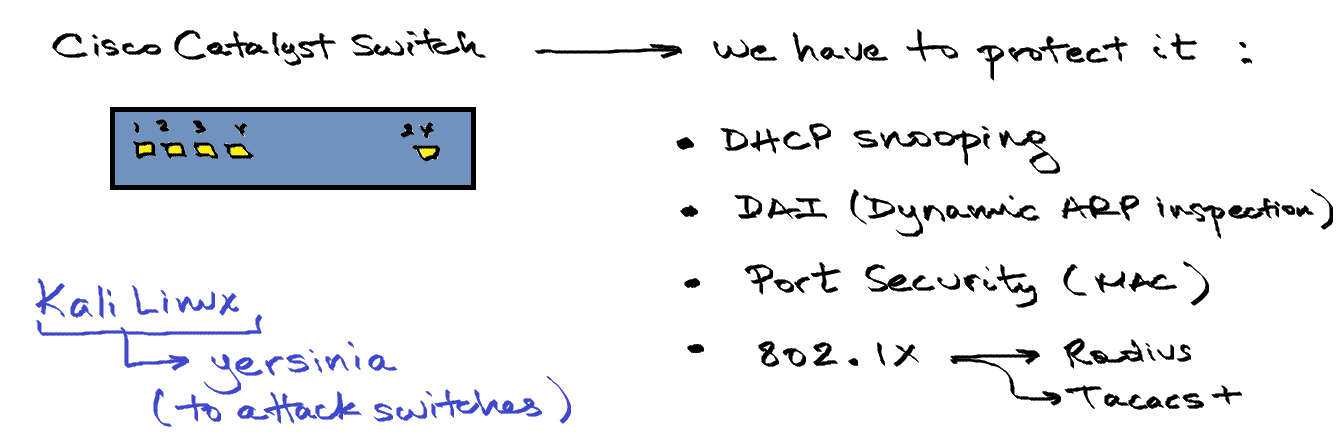 Cisco Catalyst Switch → we have to protect it :
1 2 3 4 24
• DHCP snooping
• DAI (Dynamic ARP inspection)
• Port Security (MAC)
• 802.1X → Radius
→ Tacacs+
Kali Linux
→ yersinia
(to attack switches)